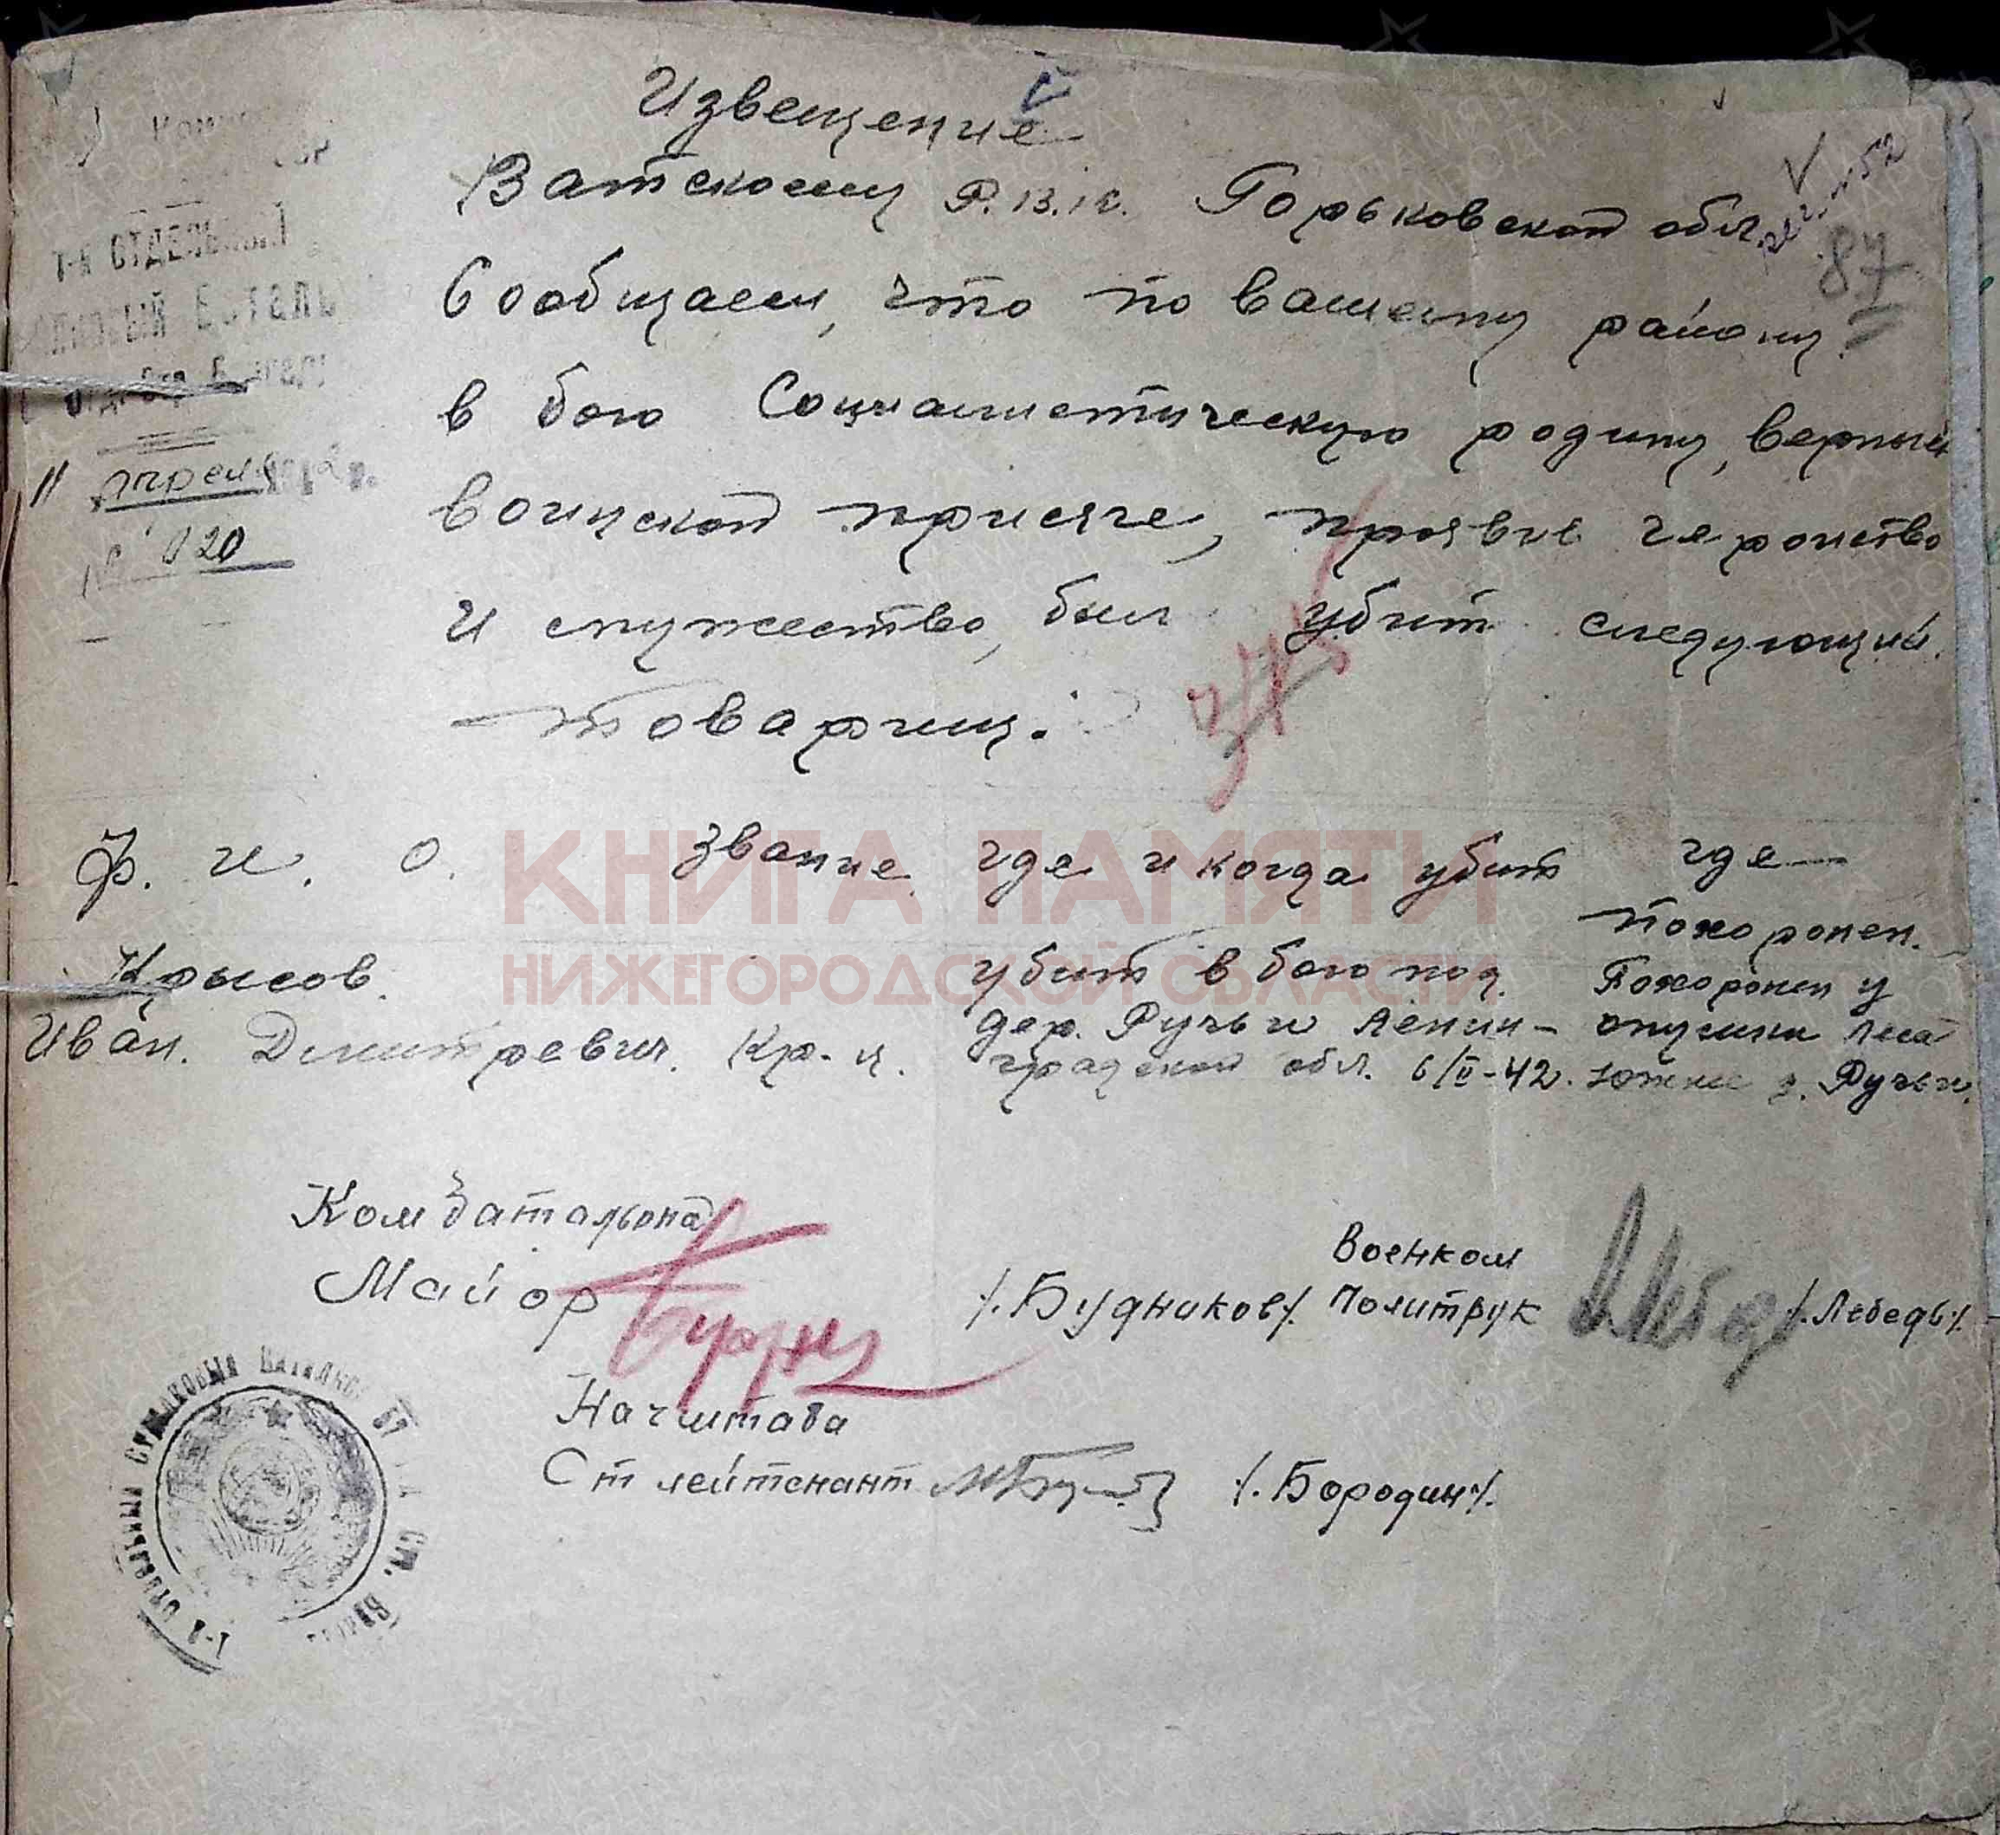 Извещение
Ватскому Р.В.К. Горьковской обл.
87
Сообщаем, что по вашему району
в бою Социалистическую родину, верный
воинской присяге, проявив геройство
и мужество, был убит следующий
товарищ.
1-Й ОТДЕЛЬНЫЙ
апреля
№ 020
Ф. И. О. звание где и когда убит где
похоронен.
Крысов убит в бою под Похоронен у
Иван Дмитревич. Кр-ц. дер. Ручьи Ленин- опушки леса
градской обл. 6/II-42. южнее д. Ручьи.
КНИГА ПАМЯТИ
НИЖЕГОРОДСКОЙ ОБЛАСТИ
Ком батальона
Майор /.Будников/. Военком
Политрук /.Лебедь/.
Начштаба
Ст лейтенант /.Бородин/.
1-й ОТДЕЛЬНЫЙ СТРЕЛКОВЫЙ БАТАЛЬОН